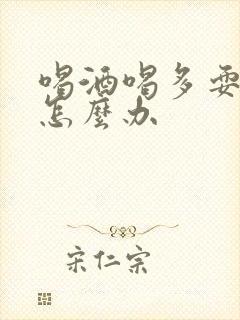 喝酒喝多要
怎麼办
宋仁宗